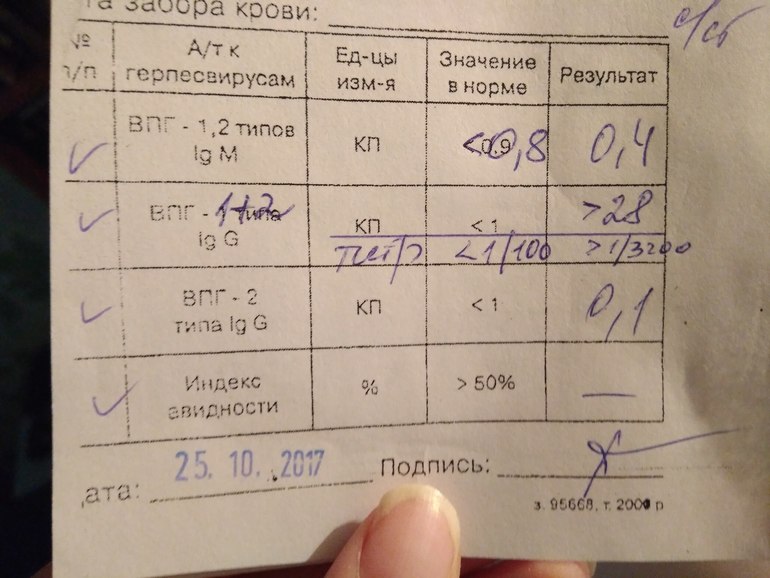 та забора крови:
с/сб
№ п/п А/т к герпесвирусам Ед-цы изм-я Значение в норме Результат
ВПГ - 1,2 типов Ig M КП <0,8 0,4
ВПГ - 1+2 типа Ig G КП < 1 >28
титр <1/100 >1/3200
ВПГ - 2 типа Ig G КП < 1 0,1
Индекс авидности % > 50% —
дата: 25. 10. 2017 Подпись:
з. 95668, т. 2000 р